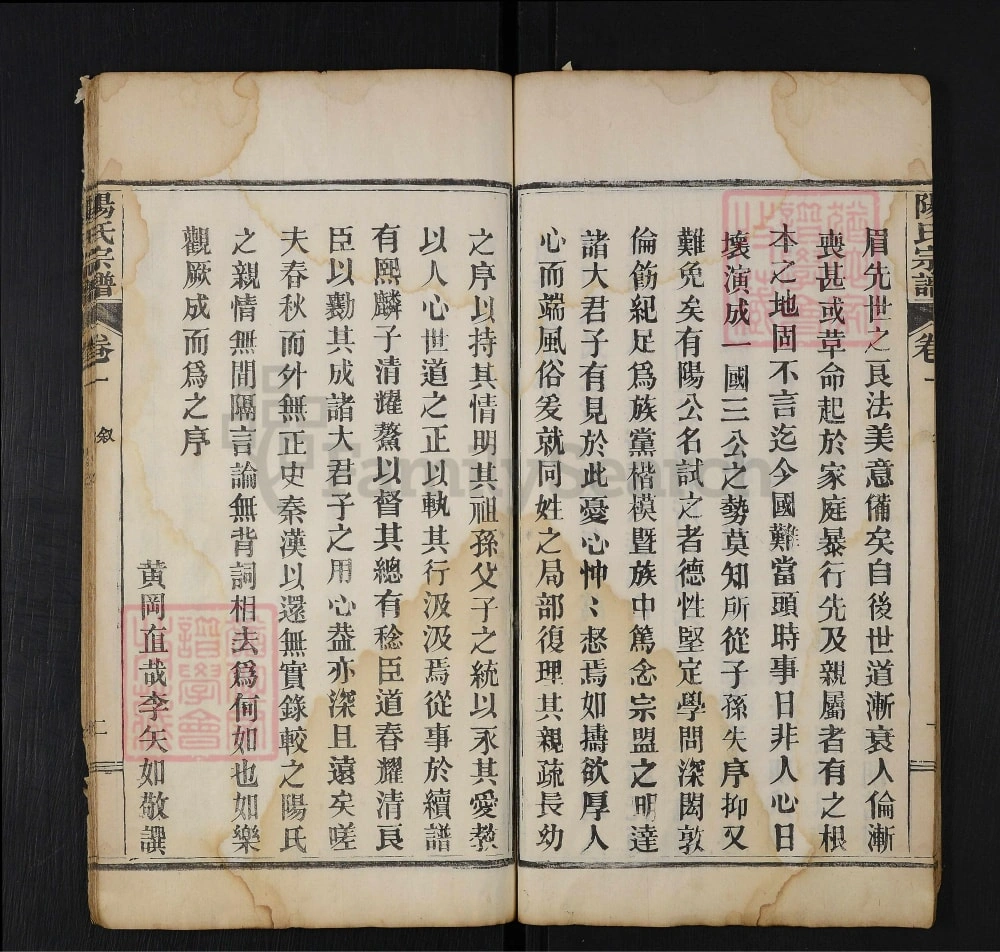 陽氏宗譜 卷一
眉先世之良法美意備矣自後世道漸衰人倫漸
喪甚或革命起於家庭暴行先及親屬者有之根
本之地固不言迄今國難當頭時事日非人心日
壞演成一國三公之勢莫知所從子孫失序抑又
難免矣有陽公名試之者德性堅定學問深閎敦
倫飭紀足爲族黨楷模暨族中篤念宗盟之明達
諸大君子有見於此憂心忡〻惄焉如擣欲厚人
心而端風俗爰就同姓之局部復理其親疏長幼
之序以持其情明其祖孫父子之統以永其愛敎
以人心世道之正以執其行汲汲焉從事於續譜
有熙麟子清耀鰲以督其總有稔臣道春耀清良
臣以勷其成諸大君子之用心葢亦深且遠矣嗟
夫春秋而外無正史秦漢以還無實錄較之陽氏
之親情無間隔言論無背詞相去爲何如也如樂
觀厥成而爲之序
黄岡直哉李矢如敬譔
陽氏宗譜 卷一 敘 二
FamilySearch